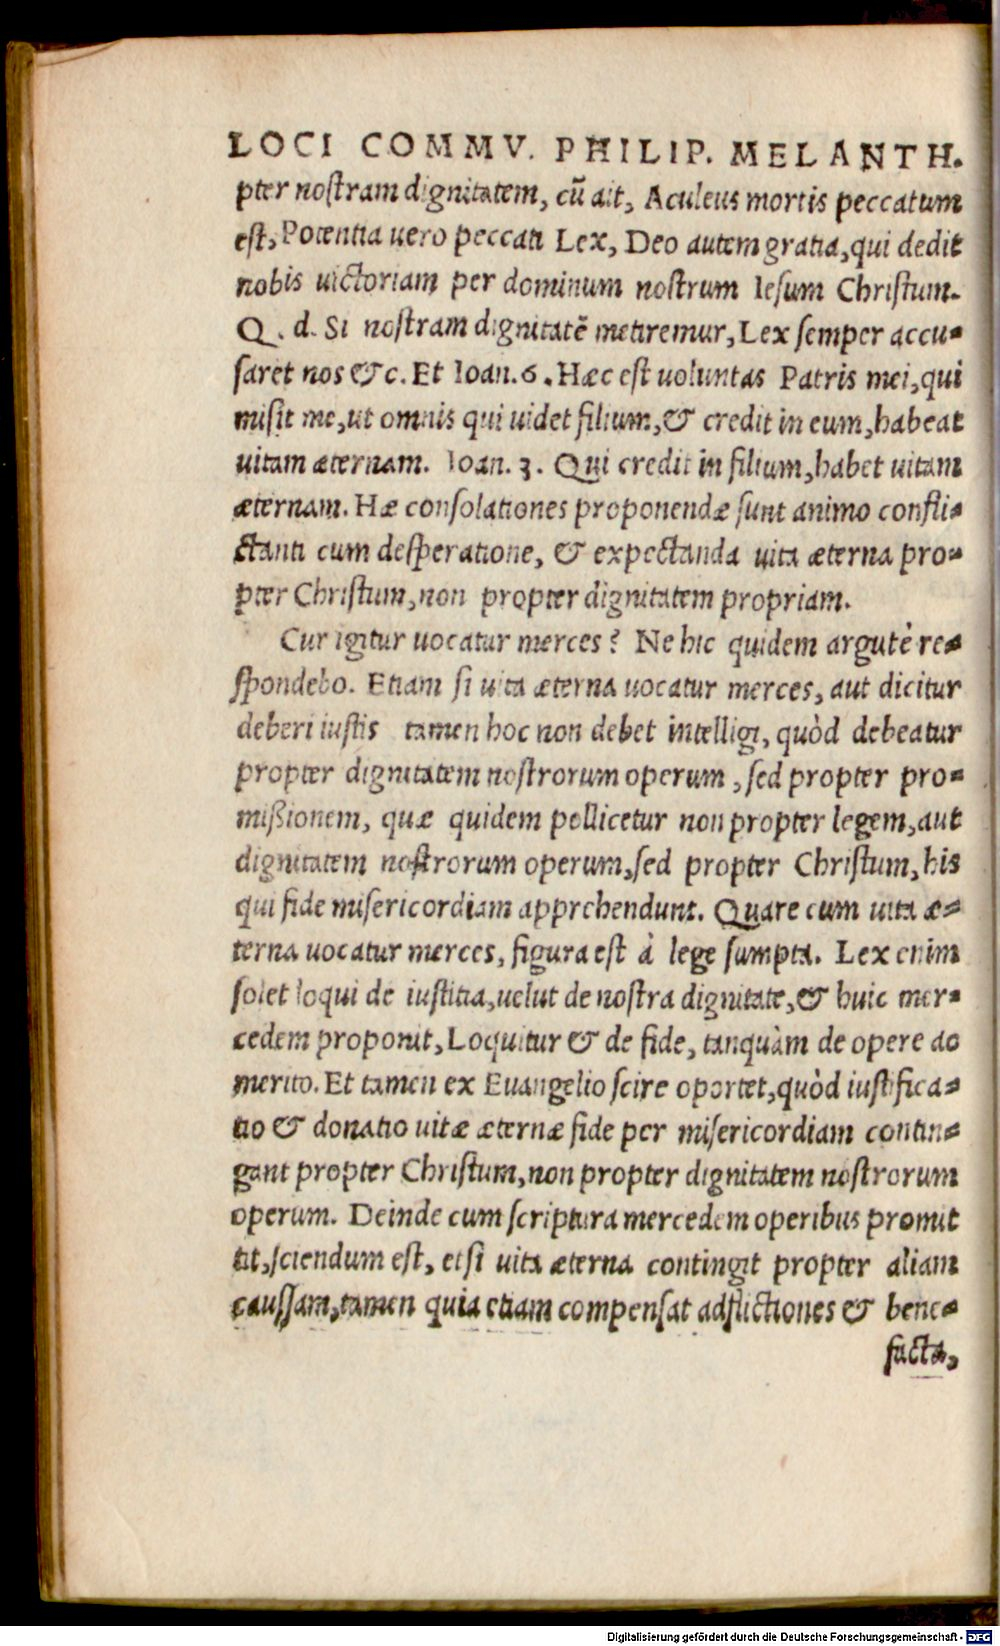 LOCI COMMV. PHILIP. MELANTH.
pter nostram dignitatem, cū ait, Aculeus mortis peccatum
est, Potentia uero peccati Lex, Deo autem gratia, qui dedit
nobis uictoriam per dominum nostrum Iesum Christum.
Q. d. Si nostram dignitatē metiremur, Lex semper accu-
saret nos &c. Et Ioan. 6. Hæc est uoluntas Patris mei, qui
misit me, ut omnis qui uidet filium, & credit in eum, habeat
uitam æternam. Ioan. 3. Qui credit in filium, habet uitam
æternam. Hæ consolationes proponendæ sunt animo confli-
ctanti cum desperatione, & expectanda uita æterna pro-
pter Christum, non propter dignitatem propriam.
Cur igitur uocatur merces? Ne hic quidem argutè re-
spondebo. Etiam si uita æterna uocatur merces, aut dicitur
deberi iustis tamen hoc non debet intelligi, quòd debeatur
propter dignitatem nostrorum operum, sed propter pro-
mißionem, quæ quidem pollicetur non propter legem, aut
dignitatem nostrorum operum, sed propter Christum, his
qui fide misericordiam apprehendunt. Quare cum uita æ-
terna uocatur merces, figura est à lege sumpta. Lex enim
solet loqui de iustitia, uelut de nostra dignitate, & huic mer-
cedem proponit, Loquitur & de fide, tanquàm de opere ac
merito. Et tamen ex Euangelio scire oportet, quòd iustifica-
tio & donatio uitæ æternæ fide per misericordiam contin-
gant propter Christum, non propter dignitatem nostrorum
operum. Deinde cum scriptura mercedem operibus promit
tit, sciendum est, etsi uita æterna contingit propter aliam
caussam, tamen quia etiam compensat adflictiones & bene-
facta,
Digitalisierung gefördert durch die Deutsche Forschungsgemeinschaft - DFG